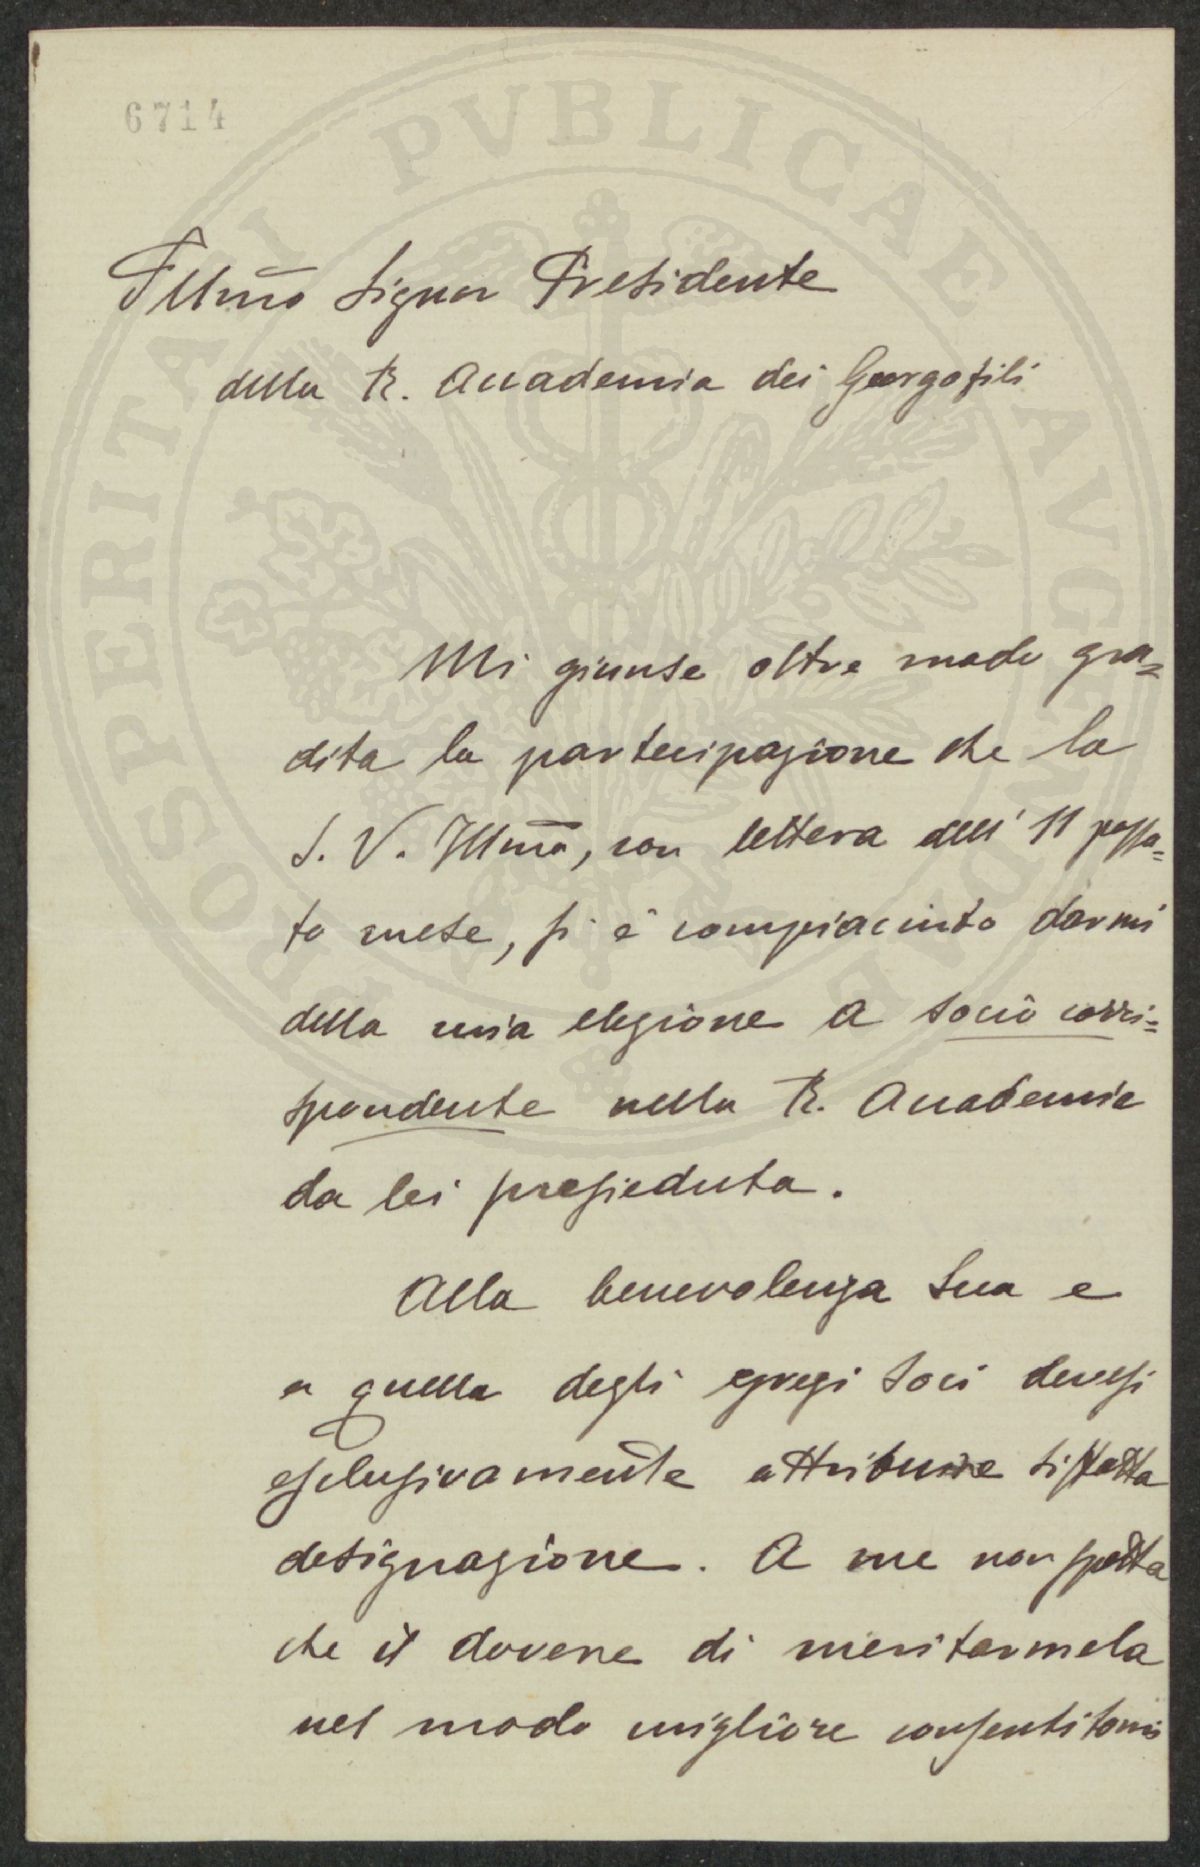 6714
Illm̃o Signor Presidente
della R. Accademia dei Georgofili
Mi giunse oltre modo gra=
dita la partecipazione che la
S. V. Illm̃a, con lettera dell' 11 passa=
to mese, si è compiaciuto darmi
della mia elezione a socio corri=
spondente nella R. Accademia
da lei presieduta.
Alla benevolenza Sua e
a quella degli egregi Soci devesi
esclusivamente attribuire siffatta
designazione. A me non spetta
che il dovere di meritarmela
nel modo migliore consentitomi
PROSPERITATI PVBLICAE AVGENDAE